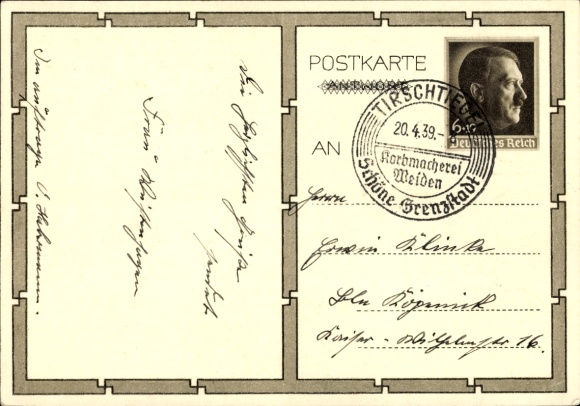 POSTKARTE
ANTWORT
6+19
Deutsches Reich
TIRSCHTIEGEL
20.4.39.-
Korbmacherei
Weiden
Schöne Grenzstadt
AN
Herrn
Erwin Klinke
Bln Köpenick
Kaiser-Wilhelmstr 16.
Die herzlichsten Grüße
sendet
Frau
Im Auftrage